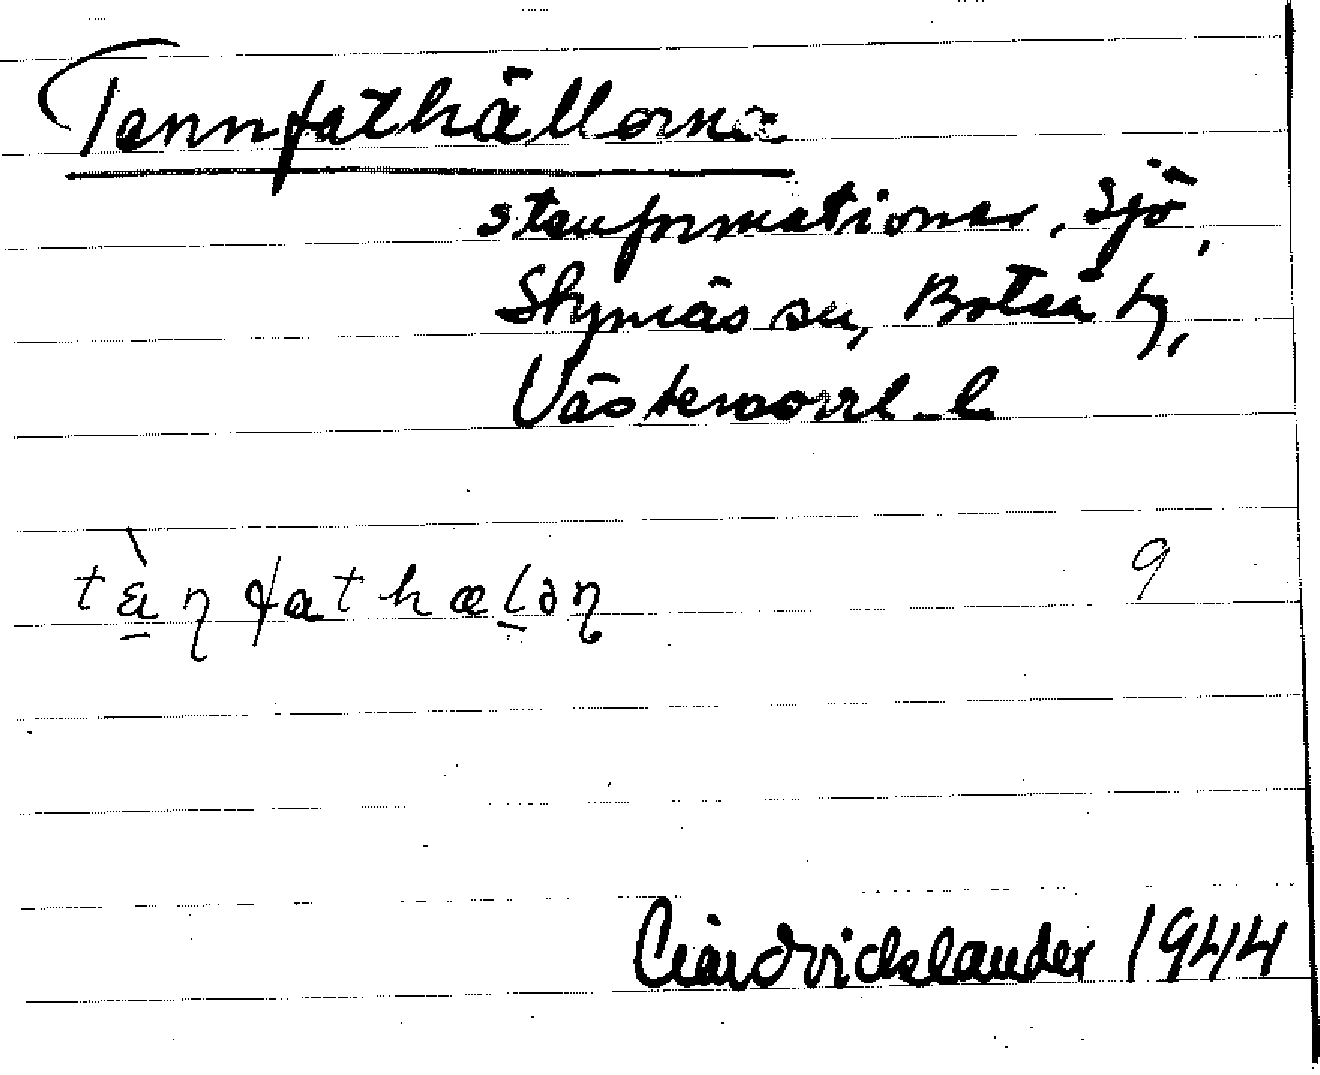 Tennfathällorna
stenformationer, Sjö,
Skymnäs sn, Boteå tg,
Västernorrl. l
tæ̀n fathælən 9
Lindvicklander 1944